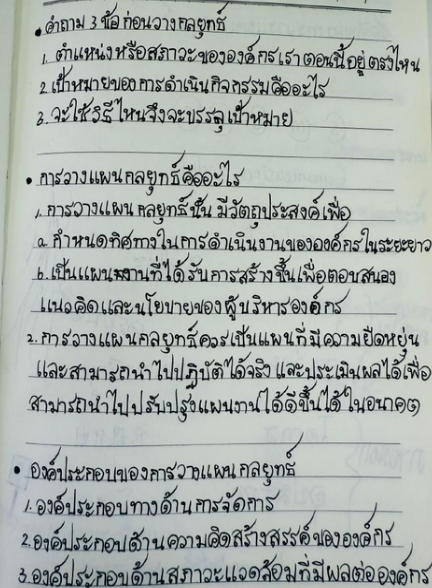 • คำถาม 3 ข้อก่อนวางกลยุทธ์
1. ตำแหน่งหรือสภาวะขององค์กรเราตอนนี้อยู่ตรงไหน
2. เป้าหมายของการดำเนินกิจกรรมคืออะไร
3. จะใช้วิธีไหนจึงจะบรรลุเป้าหมาย
• การวางแผนกลยุทธ์คืออะไร
1. การวางแผนกลยุทธ์นั้น มีวัตถุประสงค์เพื่อ
a. กำหนดทิศทางในการดำเนินงานขององค์กรในระยะยาว
b. เป็นแผนงานที่ได้รับการสร้างขึ้นเพื่อตอบสนอง
แนวคิดและนโยบายของผู้บริหารองค์กร
2. การวางแผนกลยุทธ์ควรเป็นแผนที่มีความยืดหยุ่น
และสามารถนำไปปฏิบัติได้จริง และประเมินผลได้เพื่อ
สามารถนำไปปรับปรุงแผนงานได้ดีขึ้นได้ในอนาคต
• องค์ประกอบของการวางแผนกลยุทธ์
1. องค์ประกอบทางด้านการจัดการ
2. องค์ประกอบด้านความคิดสร้างสรรค์ขององค์กร
3. องค์ประกอบด้านสภาวะแวดล้อมที่มีผลต่อองค์กร